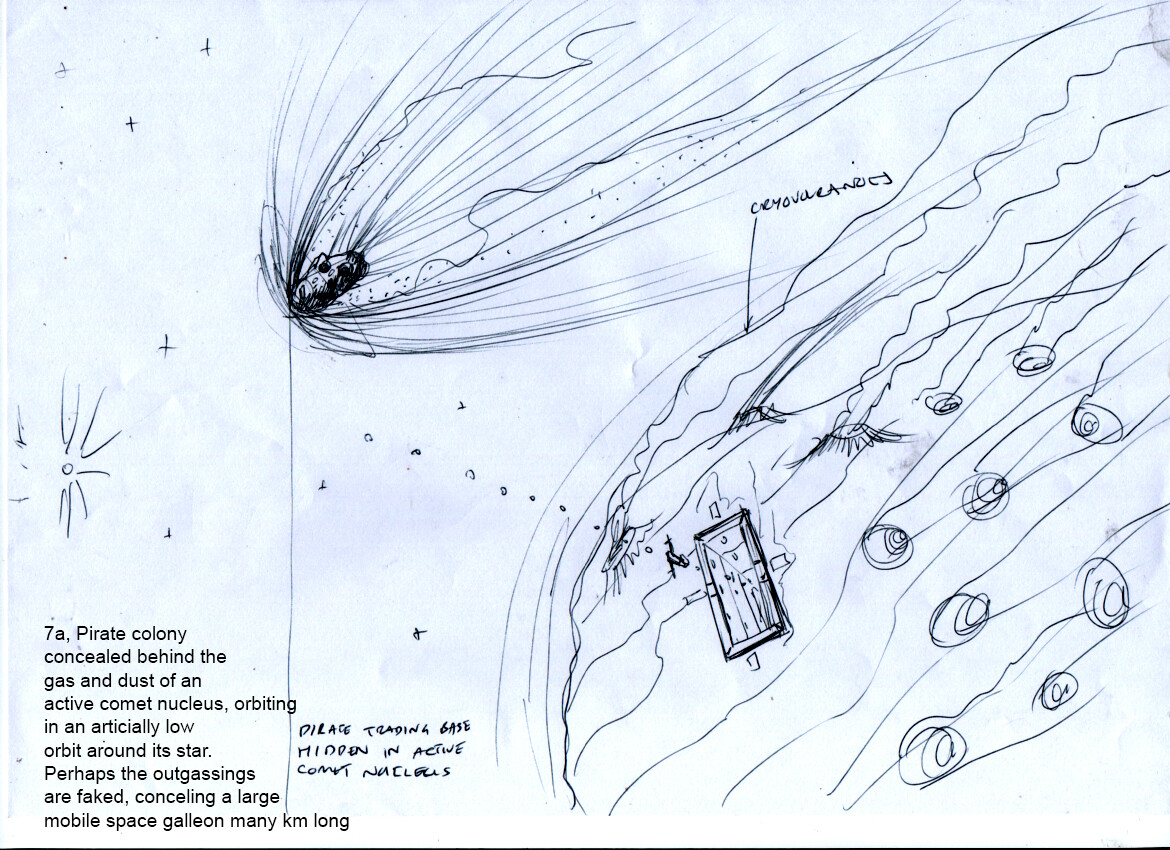 CRYOVOLCANOES
7a, Pirate colony
concealed behind the
gas and dust of an
active comet nucleus, orbiting
in an articially low
orbit around its star.
Perhaps the outgassings
are faked, conceling a large
mobile space galleon many km long
PIRATE TRADING BASE
HIDDEN IN ACTIVE
COMET NUCLEUS